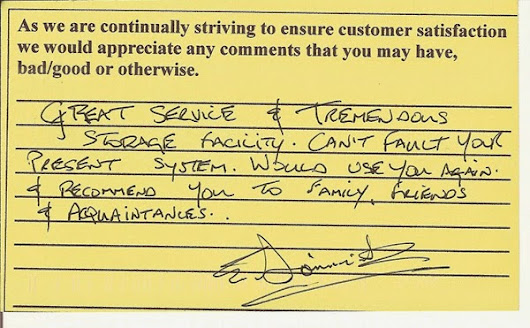 As we are continually striving to ensure customer satisfaction
we would appreciate any comments that you may have,
bad/good or otherwise.
GREAT SERVICE & TREMENDOUS
STORAGE FACILITY. CAN'T FAULT YOUR
PRESENT SYSTEM. WOULD USE YOU AGAIN.
& RECOMMEND YOU TO FAMILY, FRIENDS
& ACQUAINTANCES..